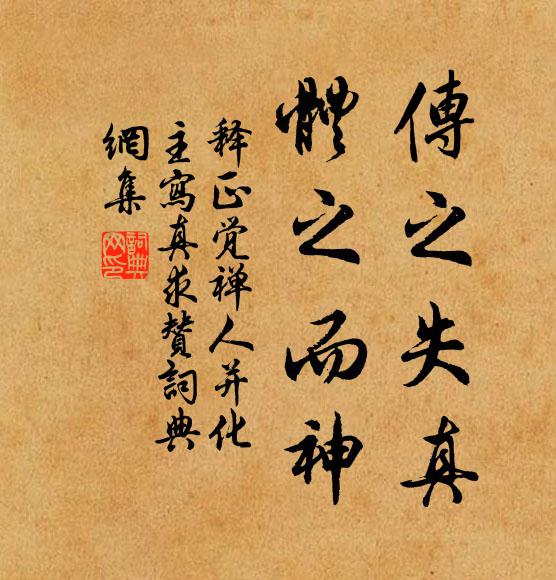 傳之失真
體之而神
释正觉禅人并化
主寫真求贊詞典
網集
詞典
网印